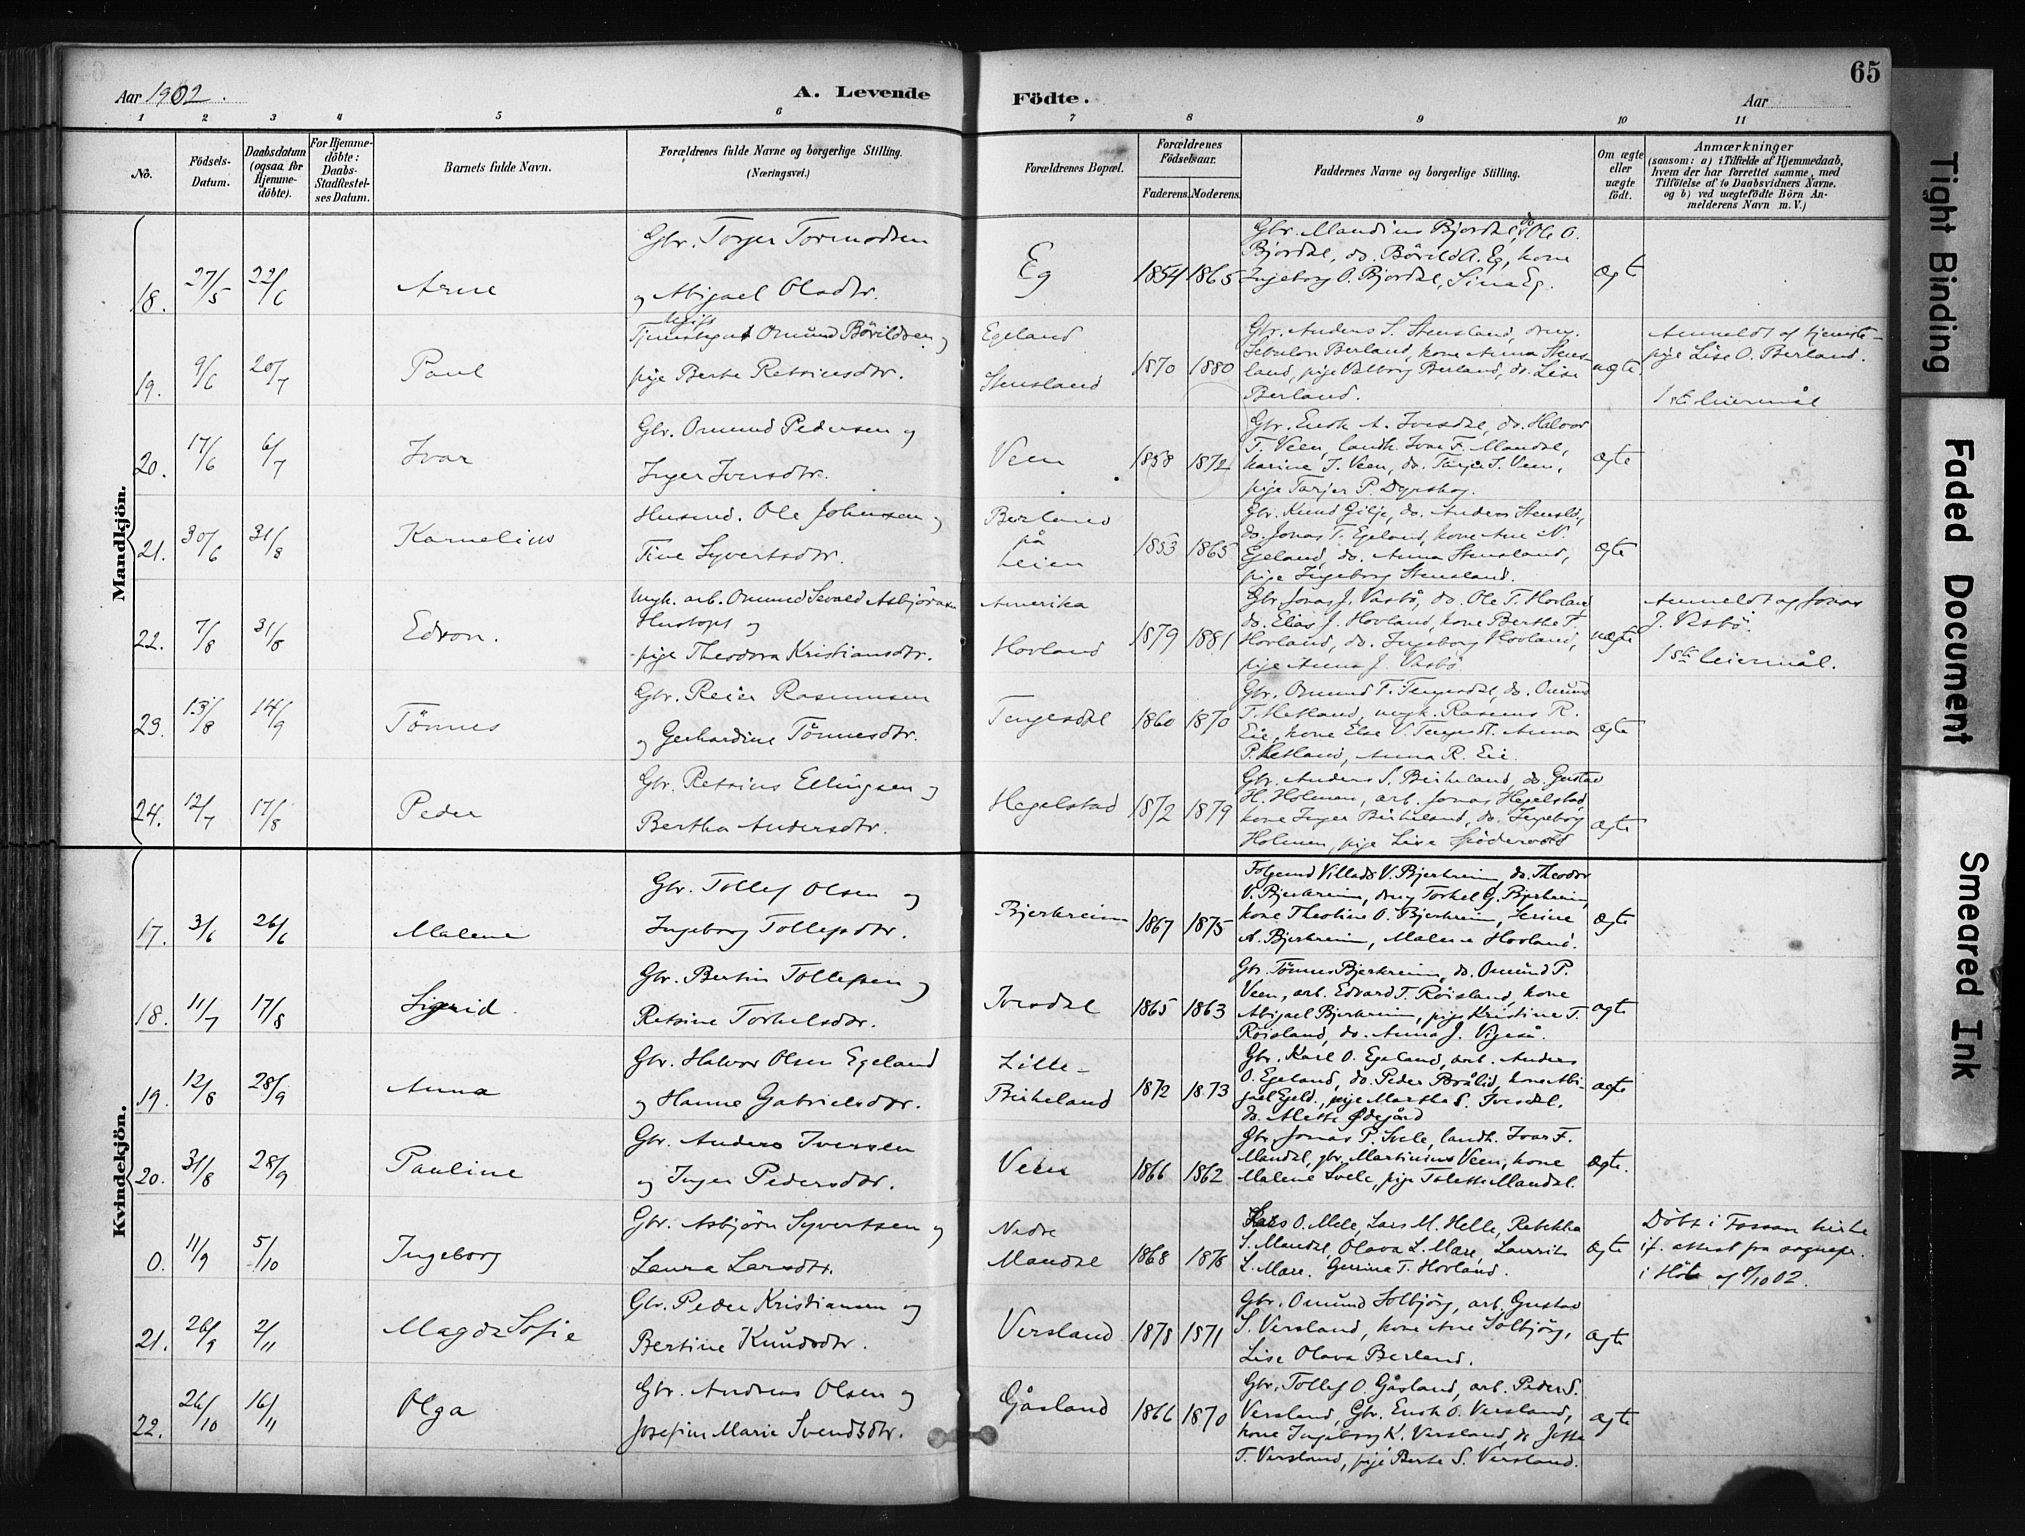 Aar 1902.
A. Levende
Födte.
Aar
65
1 2 3 4 5 6 7 8 9 10 11
No.
Födsels-Datum.
Daabsdatum (ogsaa for Hjemmedöbte).
For Hjemmedöbte: Daabs-Stadfestelses Datum.
Barnets fulde Navn.
Forældrenes fulde Navne og borgerlige Stilling. (Næringsvei.)
Forældrenes Bopæl.
Forældrenes Födselsaar.
Faderens. Moderens.
Faddernes Navne og borgerlige Stilling.
Om ægte eller uægte födt.
Anmærkninger
(saasom: a) i Tilfælde af Hjemmedaab, hvem der har forrettet samme, med Tilföielse af to Daabsvidners Navne, og b) ved uægtefödte Börn Anmelderens Navn m. V.)
Mandkjön.
18. 27/5 22/6 Arne
Gbr. Torger Tormodsen
og Abigael Olsdtr.
Eg 1854 1865
Gbr. Mandius Bjordal, do. Ole O.
Bjordal, do. Bårild A. Eg, kone
Ingeborg O. Bjordal, Sina Eg.
ægte
19. 9/6 20/7 Paul
Ugift
Omund Bårildsen og
pige Berte Retsiusdtr.
Egeland
Stensland
1870 1880
Gbr. Anders S. Stensland, drug.
Sebulon Berland, kone Anna Stens-
land, pige Valborg Berland, do. Lise
Berland.
uægte
Anmeldt af tjeneste-
pige Lise O. Berland.
1ste leiermål
20. 17/6 6/7 Ivar
Gbr. Omund Pedersen og
Inger Iversdtr.
Veen 1858 1872
Gbr. Enok A. Ivesdal, do. Halvor
T. Veen, landh. Ivar F. Mandal,
karine T. Veen, do. Tarjer T. Veen,
pige Tarjer P. Dyrskog.
ægte
21. 30/6 31/8 Kornelius
Husmd. Ole Johnsen og
Tine Syvertsdtr.
Berland
på
Leien
1853 1865
Gbr. Knud Gilje, do. Anders Stensld,
do. Jonas T. Egeland, kone Ane N.
Egeland, do. Anna Stensland,
pige Ingeborg Stensland.
ægte
22. 7/8 31/8 Edvon.
Ungk. arb. Omund Sevald Asbjörnsen
Hustoft og
pige Theodora Kristiansdtr.
Amerika
Hovland
1879 1881
Gbr. Jonas J. Vasbö, do. Ole T. Hovland
do. Elias J. Hovland, kone Berthe T.
Hovland, do. Ingeborg Hovland,
pige Anna J. Vasbö
uægte
Anmeldt af Jonas
J. Vasbö.
1ste leiermål.
23. 13/8 14/9 Tönnes
Gbr. Reier Rasmussen
og Gerhardine Tönnesdtr.
Tengesdal 1860 1870
Gbr. Omund T. Tengesdal, do. Omund
T. Hetland, ungk. Rasmus R.
Eie, kone Else V. Tengesdl. Anna
P. Hetland, Anna R. Eie.
ægte
24. 12/7 17/8 Peder
Gbr. Retsius Ellingsen og
Bertha Andersdtr.
Hegelstad 1872 1879
Gbr. Anders S. Birkeland, do. Gustav
H. Holmen, arb. Jonas Hegelstad,
kone Inger Birkeland, do. Ingeborg
Holmen, pige Lise Spödervold
ægte
Kvindekjön.
17. 3/6 26/6 Malene
Gbr. Tollef Olsen og
Ingeborg Tollefsdtr.
Bjerkreim 1867 1875
Folgemd Villads V. Bjerkreim, do. Theodor
V. Bjerkreim, drug Torkel G. Bjerkreim,
kone Theoline O. Bjerkreim, Serine
A. Bjerkreim, Malene Hovland.
ægte
18. 11/7 17/8 Sigrid.
Gbr. Bertin Tollefsen og
Retsine Torkelsdtr.
Ivesdal 1865 1863
Gbr. Tönnes Bjerkreim, do. Omund P.
Veen, arb. Edvard T. Röisland, kone
Abigael Bjerkreim, pige Kristine T.
Röisland, do. Anna J. Vigeså.
ægte
19. 12/8 28/9 Anna
Gbr. Halvor Olsen Egeland
og Hanne Gabrielsdtr.
Lille-
Birkeland
1872 1873
Gbr. Karl O. Egeland, arb. Anders
O. Egeland, do. Peder Brålid, kone Abi-
gael Egeld., pige Martha S. Ivesdal.
do. Alette Ødegård
ægte
20. 31/8 28/9 Pauline
Gbr. Anders Iversen
og Inger Pedersdtr.
Veen 1866 1862
Gbr. Jonas P. Svele, landh. Ivar F.
Mandal, gbr. Martinius Veen, kone
Malene Svele, pige Tolette Mandal.
ægte.
0. 11/9 5/10 Ingeborg
Gbr. Asbjörn Syvertsen og
Laura Larsdtr.
Nedre
Mandal
1868 1876
Lars O. Mele, Lars M. Helle, Rebekka
S. Mandal, Olava L. Mære, Laurits
L. Mære. Gurina T. Hovland.
ægte
Döbt i Fossan kirke
if. attest fra sognepr.
i Höle af 8/10 02.
21. 26/9 2/11 Magda Sofie
Gbr. Peder Kristiansen og
Bertine Knudsdtr.
Versland 1878 1871
Gbr. Omund Solbjörg, arb. Gustav
S. Versland, kone Ane Solbjörg,
Lise Olava Berland.
ægte
22. 26/10 16/11 Olga
Gbr. Andreas Olsen og
Josefine Marie Svendsdtr.
Gåsland 1866 1870
Gbr. Tollef O. Gåsland, arb. Peder S.
Versland, Gbr. Enok O. Versland,
kone Ingeborg K. Versland, do Jette
T. Versland, pige Berte S. Versland.
ægte
Tight Binding
Faded Document
Smeared Ink